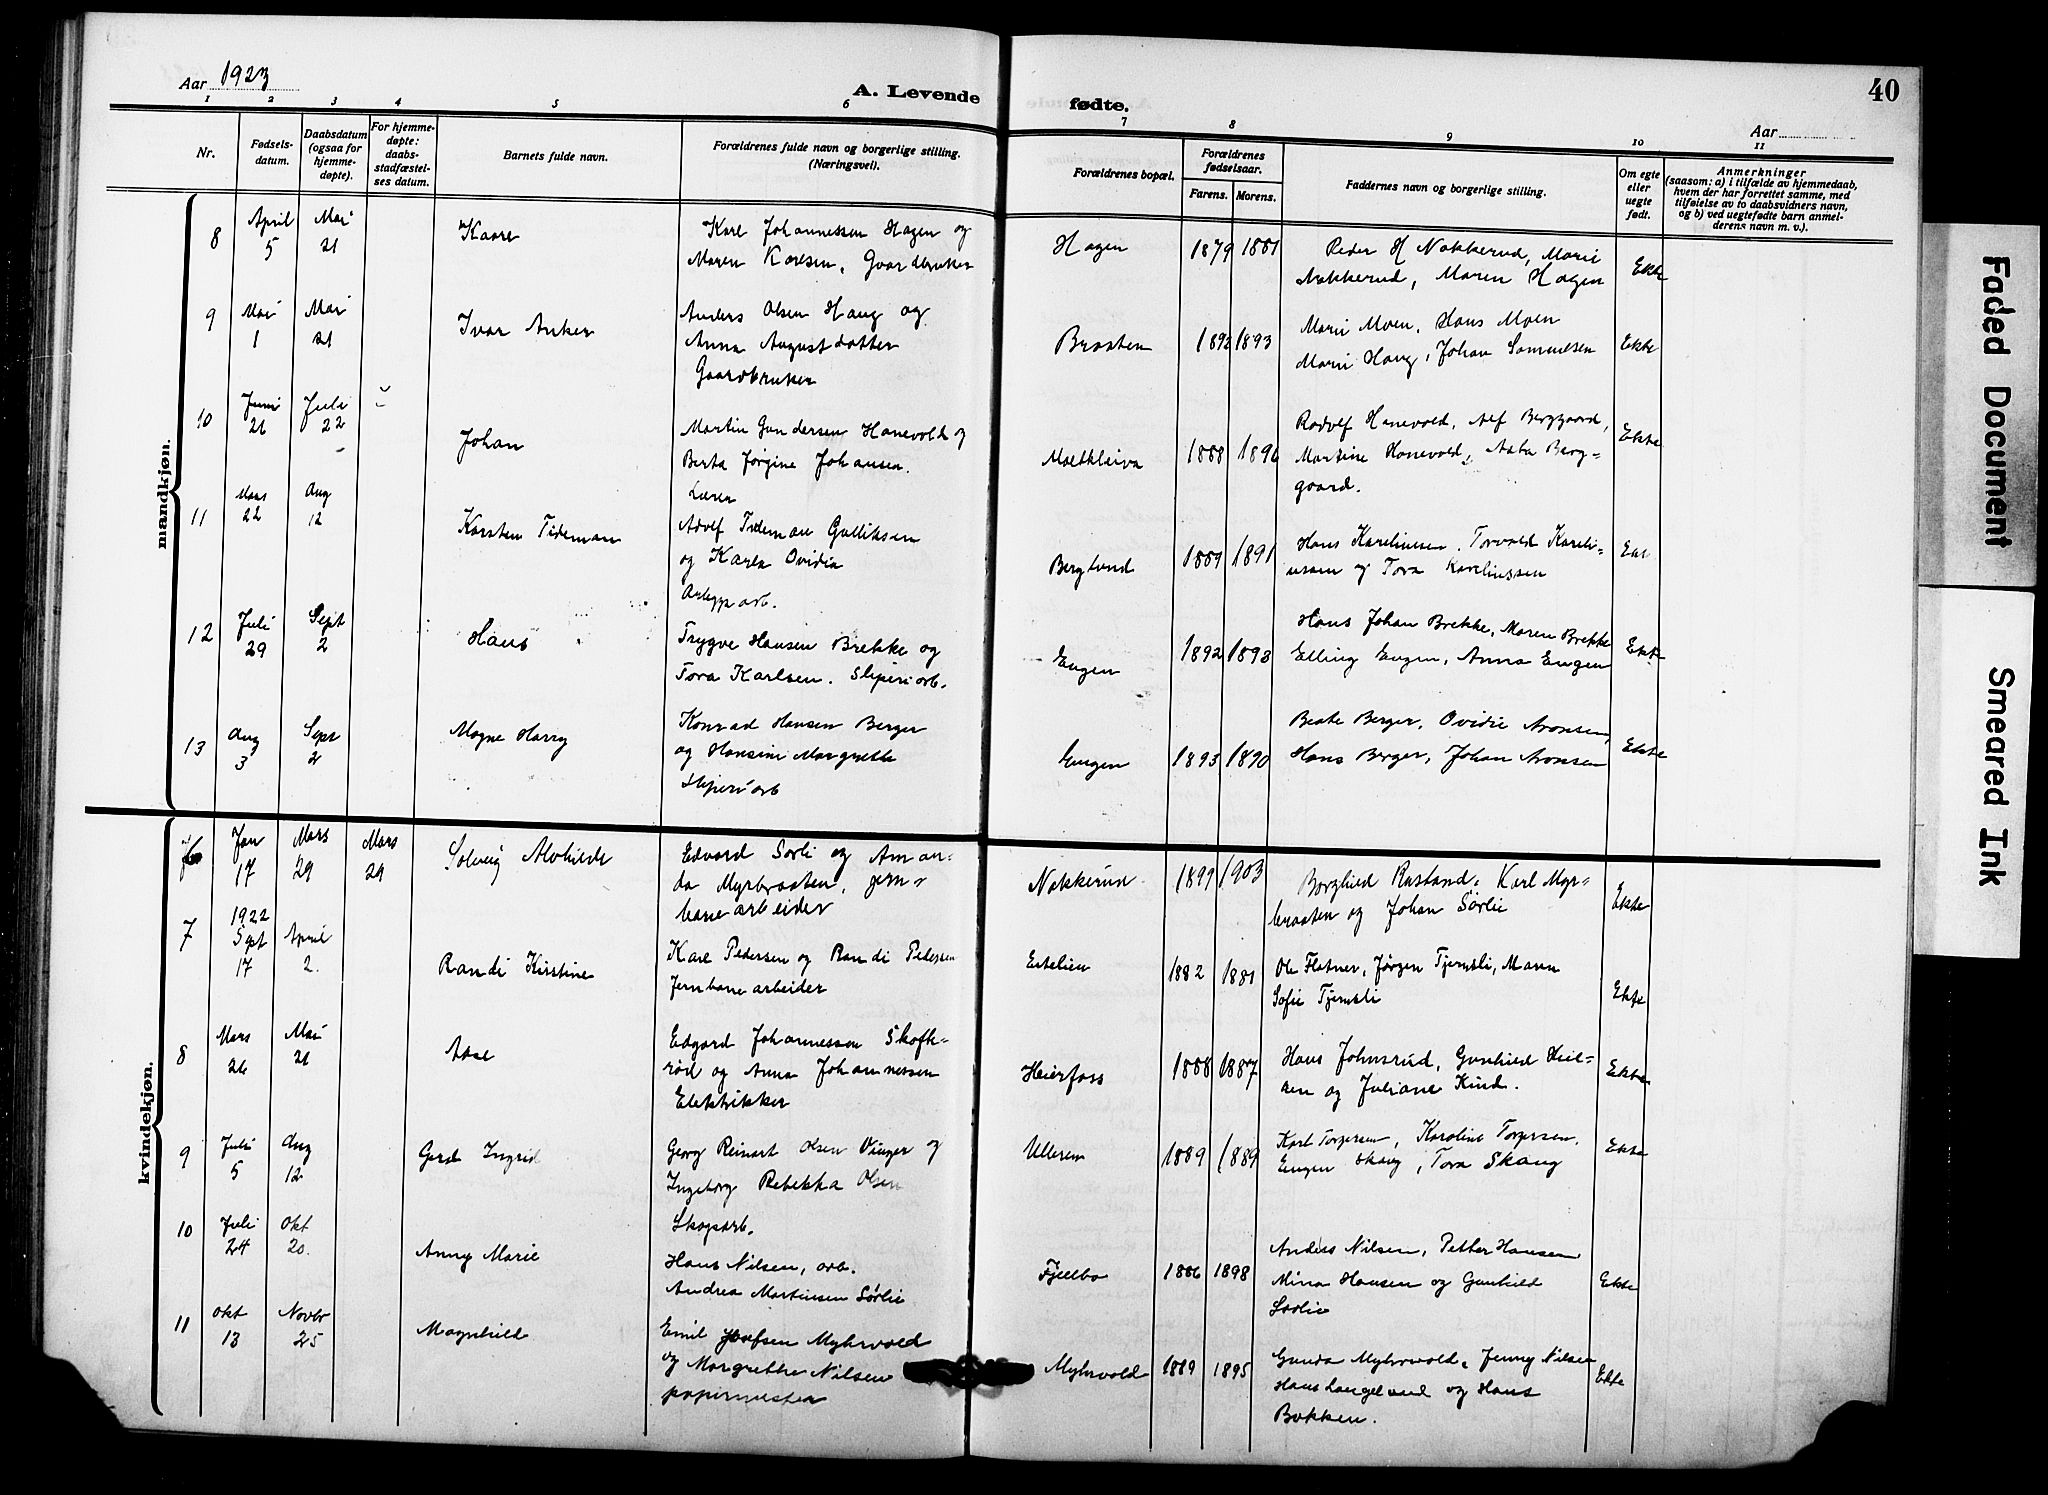 Aar 1923
A. Levende fødte.
40
Aar
1 2 3 4 5 6 7 8 9 10 11
Nr.
Fødsels-
datum.
Daabsdatum
(ogsaa for
hjemme-
døpte).
For hjemme-
døpte:
daabs-
stadfæstel-
ses datum.
Barnets fulde navn.
Forældrenes fulde navn og borgerlige stilling.
(Næringsvei).
Forældrenes bopæl.
Forældrenes
fødselsaar.
Farens. Morens.
Faddernes navn og borgerlige stilling.
Om egte
eller
uegte
født.
Anmerkninger
(saasom: a) i tilfælde av hjemmedaab,
hvem der har forrettet samme, med
tilføielse av to daabsvidners navn,
og b) ved uegtefødte barn anmel-
derens navn m. v.).
mandkjøn.
8 April 5 Mai 21 Kaare
Karl Johannessen Hagen og
Maren Karlsen, Gaardbruker
Hagen 1879 1881
Peder H Nakkerud, Marie
Nakkerud, Maren Hagen
Ekte
9 Mai 1 Mai 21 Ivar Anker
Anders Olsen Haug og
Anna Augustdatter
Gaardbruker
Braaten 1892 1893
Marie Moen, Hans Moen
Marie Haug, Johan Samuelsen
Ekte
10 Juni 21 Juli 22 Johan
Martin Gundersen Hanevold og
Berta Jørgine Johansen.
Lærer
1888 1896
Hanevold, Alf Berggaard,
Martine Hanevold, Berg-
gaard.
Ekte
11 Mars 22 Aug 12 Karsten Tideman
Adolf Tideman Gulliksen
og Karla Ovidia
Berglund 1889 1891
Hans Kareliussen, Torvald Kareli-
ussen og Tora Kareliussen
12 Juli 29 Sept 2 Hans
Trygve Hansen Brekke og
Tora Karlsen. Sliperiarb.
Engen 1892 1893
Hans Johan Brekke, Maren Brekke
Elling Engen, Anna Engen
Ekte
13 Aug 3 Sept 2 Magne Harry
Konrad Hansen Berger
og Hansine Margrethe
Sliperiarb
Engen 1893 1890
Beate Berger, Ovidie Aronsen,
Hans Berger, Johan Aronsen
Ekte
kvindekjøn.
Jan 17 Mars 29 Mars 29 Solveig Alvhilde
Edvard Sørli og Aman-
da Myrbraaten, jern-
banearbeider
Nakkerud 1899 1903
Borghild Rustand, Karl Myr-
braaten og Johan Sørlie
Ekte
7 1922 Sept 17 April 2. Randi Kirstine
Karl Pedersen og Randi Pedersen
Jernbanearbeider
1882 1881
Ole Flatner, Jørgen Tjernsli, Maren
Sofie Tjernsli
Ekte
8 Mars 26 Mai 21 Aase
Edgard Johannessen Skoft-
rød og Anna Johannessen
Elektrikker
Heierfoss 1888 1887
Hans Johnsrud, Gunhild Niel-
sen og Juliane Kind.
Ekte
9 Juli 5 Aug 12 Gerd Ingrid
Georg Reinart Olsen Vinger og
Ingeborg Rebekka Olsen
Skogsarb.
Ullerem 1889 1889
Karl Torgersen, Karoline Torgersen.
Engen Skaug, Tora Skaug
Ekte
10 Juli 24 Okt 20. Anny Marie
Hans Nilsen, arb.
Andrea Martinsen Sørlie
Fjellbo 1886 1898
Anders Nilsen, Petter Hansen
Mina Hansen og Gunhild
Sørlie
Ekte
11 Okt 13 Novbr 25 Magnhild
Emil Josefsen Myhrvold
og Margrethe Nilsen
papirmester
Myhrvold 1889 1895
Gunda Myhrvold, Jenny Nilsen
Hans Langelund og Hans
Bakken.
Ekte
Faded Document
Smeared Ink